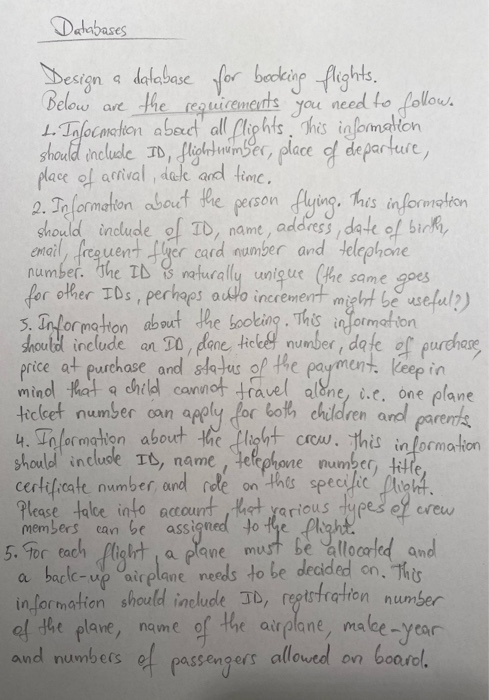 Databases
Design a database for booking flights.
Below are the requirements you need to follow.
1. Information about all flights. This information
should include ID, flightnumber, place of departure,
place of arrival, date and time.
2. Information about the person flying. This information
should include of ID, name, address, date of birth,
email, frequent flyer card number and telephone
number. The ID is naturally unique (the same goes
for other IDs, perhaps auto increment might be useful?)
3. Information about the booking. This information
should include an ID, plane ticket number, date of purchase,
price at purchase and status of the payment. Keep in
mind that a child cannot travel alone, i.e. one plane
ticket number can apply for both children and parents.
4. Information about the flight crew. This information
should include ID, name, telephone number, title,
certificate number and role on this specific flight.
Please take into account that various types of crew
members can be assigned to the flight.
5. For each flight, a plane must be allocated and
a back-up airplane needs to be decided on. This
information should include ID, registration number
of the plane, name of the airplane, make-year
and numbers of passengers allowed on board.